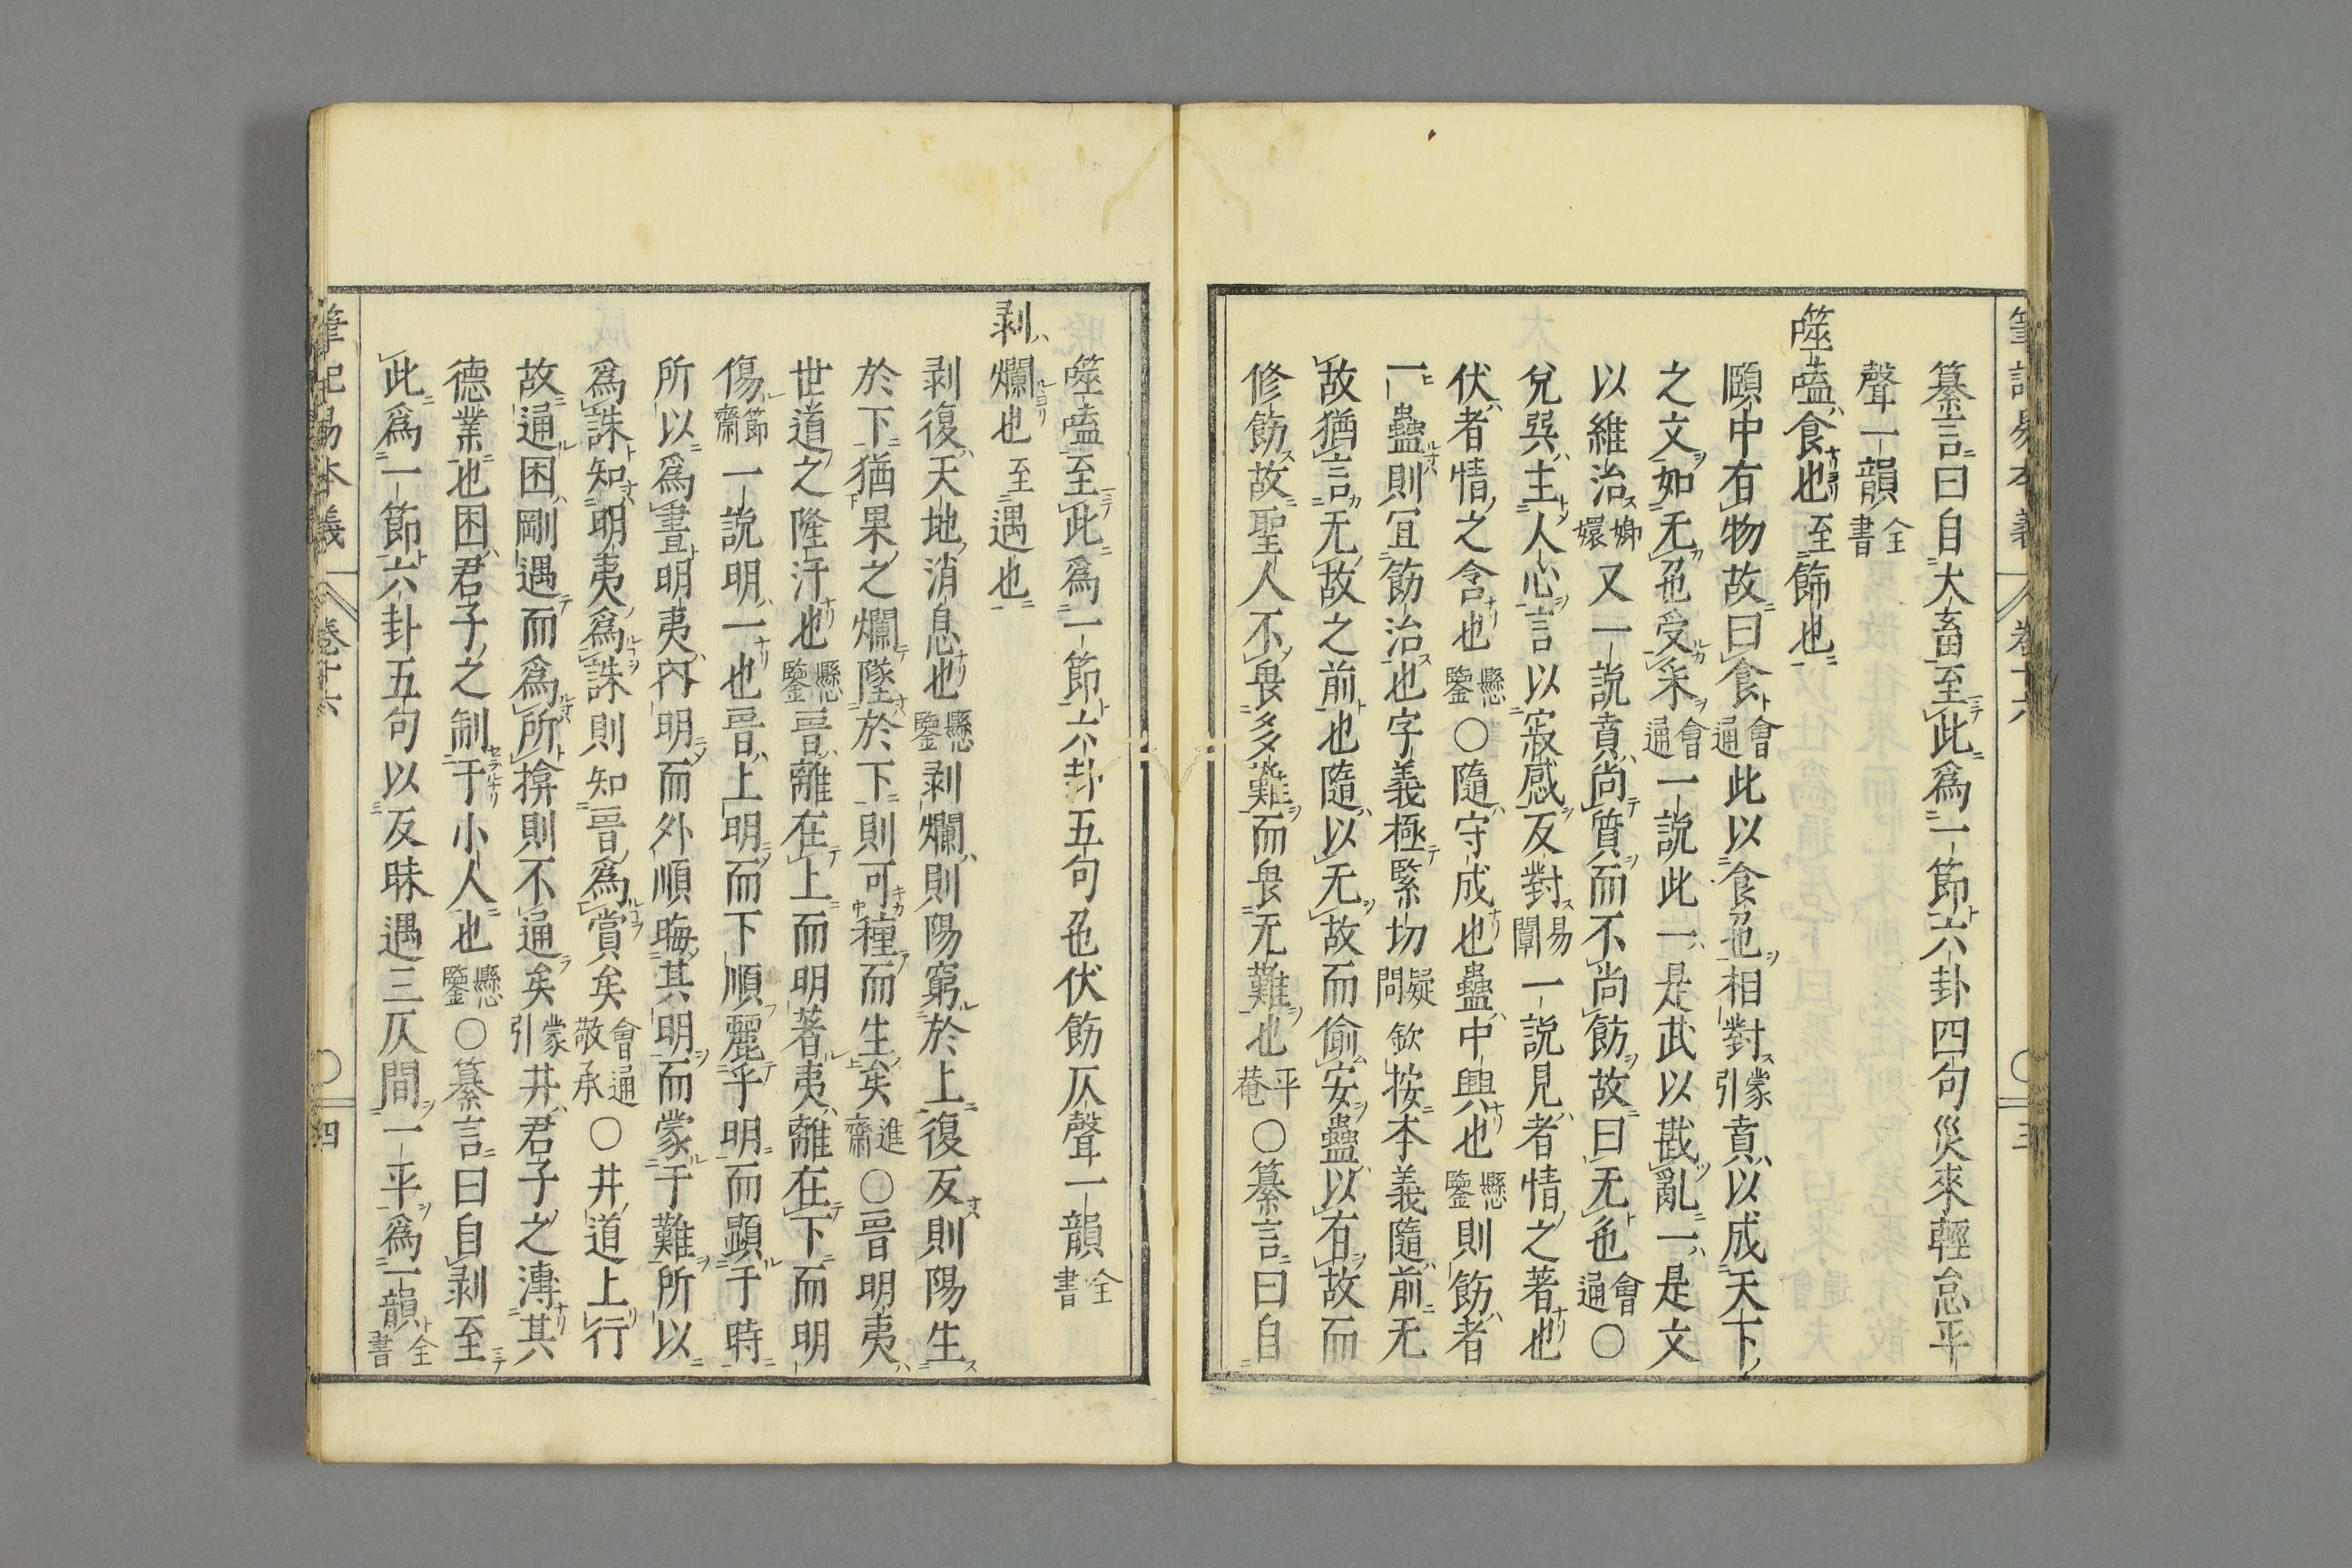 筆記易本義 卷十六 三
纂言曰自大畜至此爲一節六卦四句災來輕怠平
聲一韻全書
噬嗑食也至飾也
頤中有物故曰食會通此以食色相對蒙引賁以成天下
之文如无色受采會通一說此一是武以戡亂一是文
以維治嫏嬛又一說賁尚質而不尚飭故曰无色會通○
兌巽主人心言以寂感反對易闡一說見者情之著也
伏者情之含也懸鑒○隨守成也蠱中興也懸鑒則飭者
一蠱則宜飭治也字義極緊切疑問欽按本義隨前无
故猶言无故之前也隨以无故而偷安蠱以有故而
修飭故聖人不畏多難而畏无難也平菴○纂言曰自
噬嗑至此爲一節六卦五句色伏飭仄聲一韻全書
剥爛也至遇也
剥復天地消息也懸鑒剥爛則陽窮於上復反則陽生
於下猶果之爛墜於下則可種而生矣進齋○晉明夷
世道之隆汙也懸鑒晉離在上而明著夷離在下而明
傷節齋一說明一也晉上明而下順麗乎明而顕于時
所以爲晝明夷內明而外順晦其明而蒙于難所以
爲誅知明夷爲誅則知晉爲賞矣會通敬承○井道上行
故通困剛遇而爲所揜則不通矣蒙引井君子之溥其
德業也困君子之制于小人也懸鑒○纂言曰自剥至
此爲一節六卦五句以反昧遇三仄間一平爲一韻全書
筆記易本義 卷十六 四